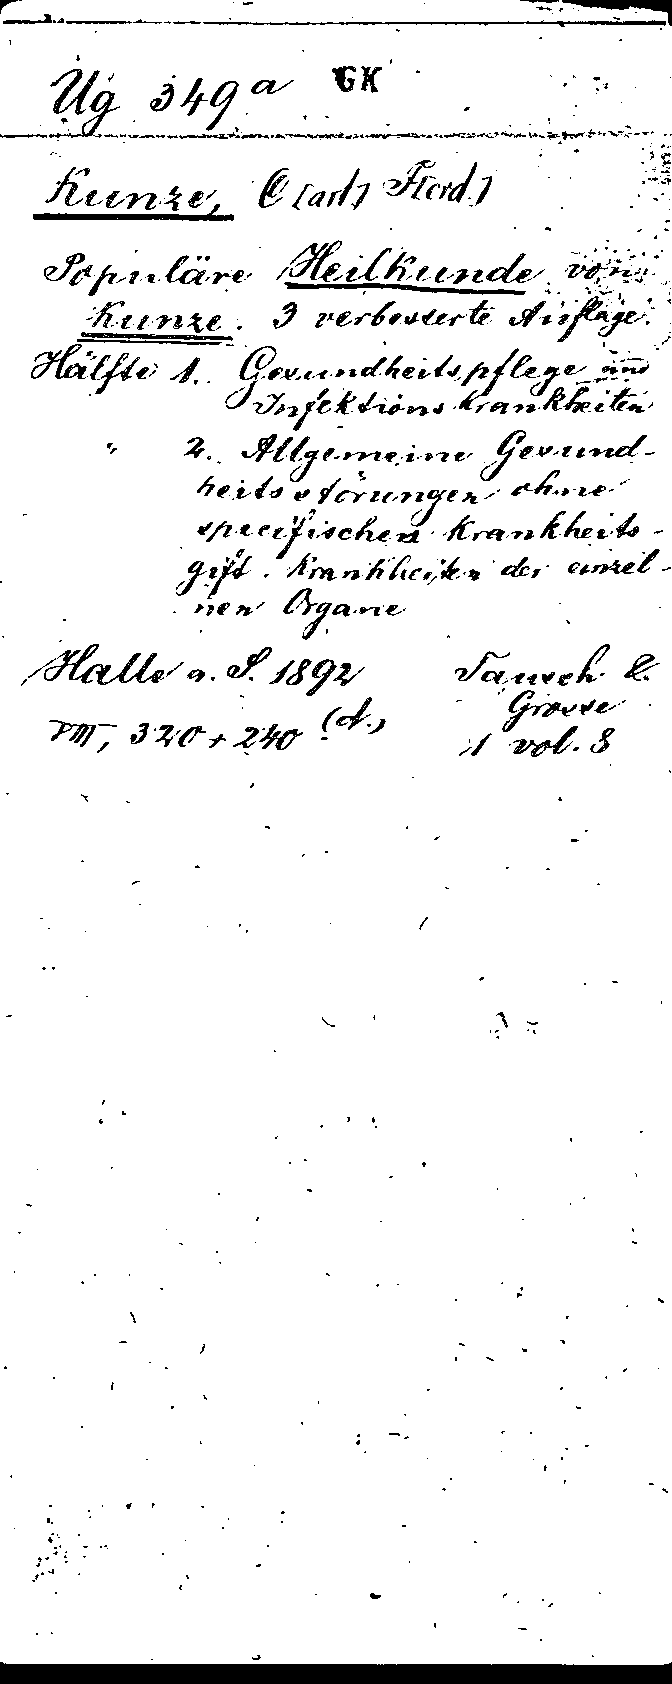 Ug 349a GK
Kunze, C[arl] F[erd.]
Populäre Heilkunde von
Kunze. 3 verbesserte Auflage.
Hälfte 1. Gesundheitspflege und
Infektionskrankheiten
" 2. Allgemeine Gesund-
heitsstörungen ohne
specifischen Krankheits-
gift. Krankheiten der einzel-
nen Organe
Halle a. S. 1892 Tausch &
Grosse
VIII, 320 + 240 (d.) 1 vol. 8